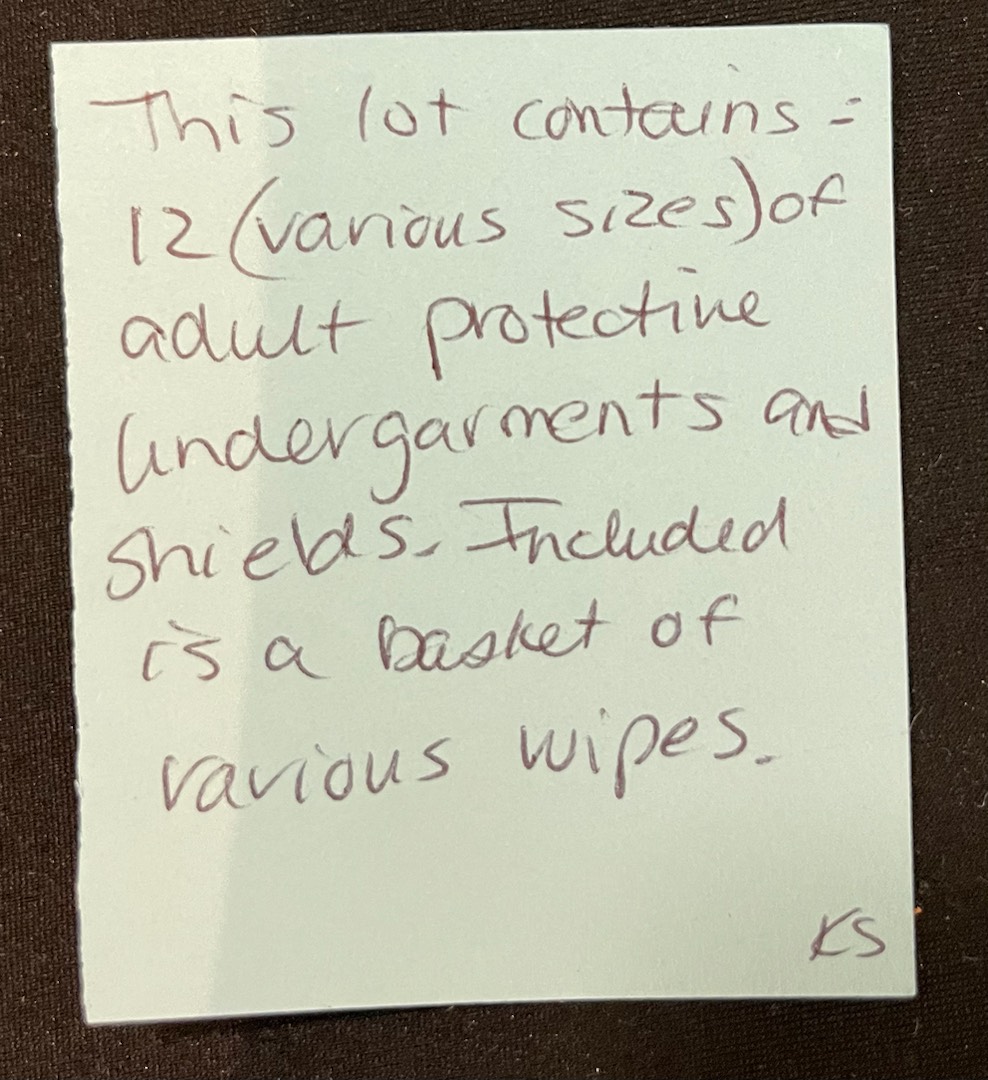 This lot contains =
12 (various sizes) of
adult protective
undergarments and
shields. Included
is a basket of
various wipes.
KS